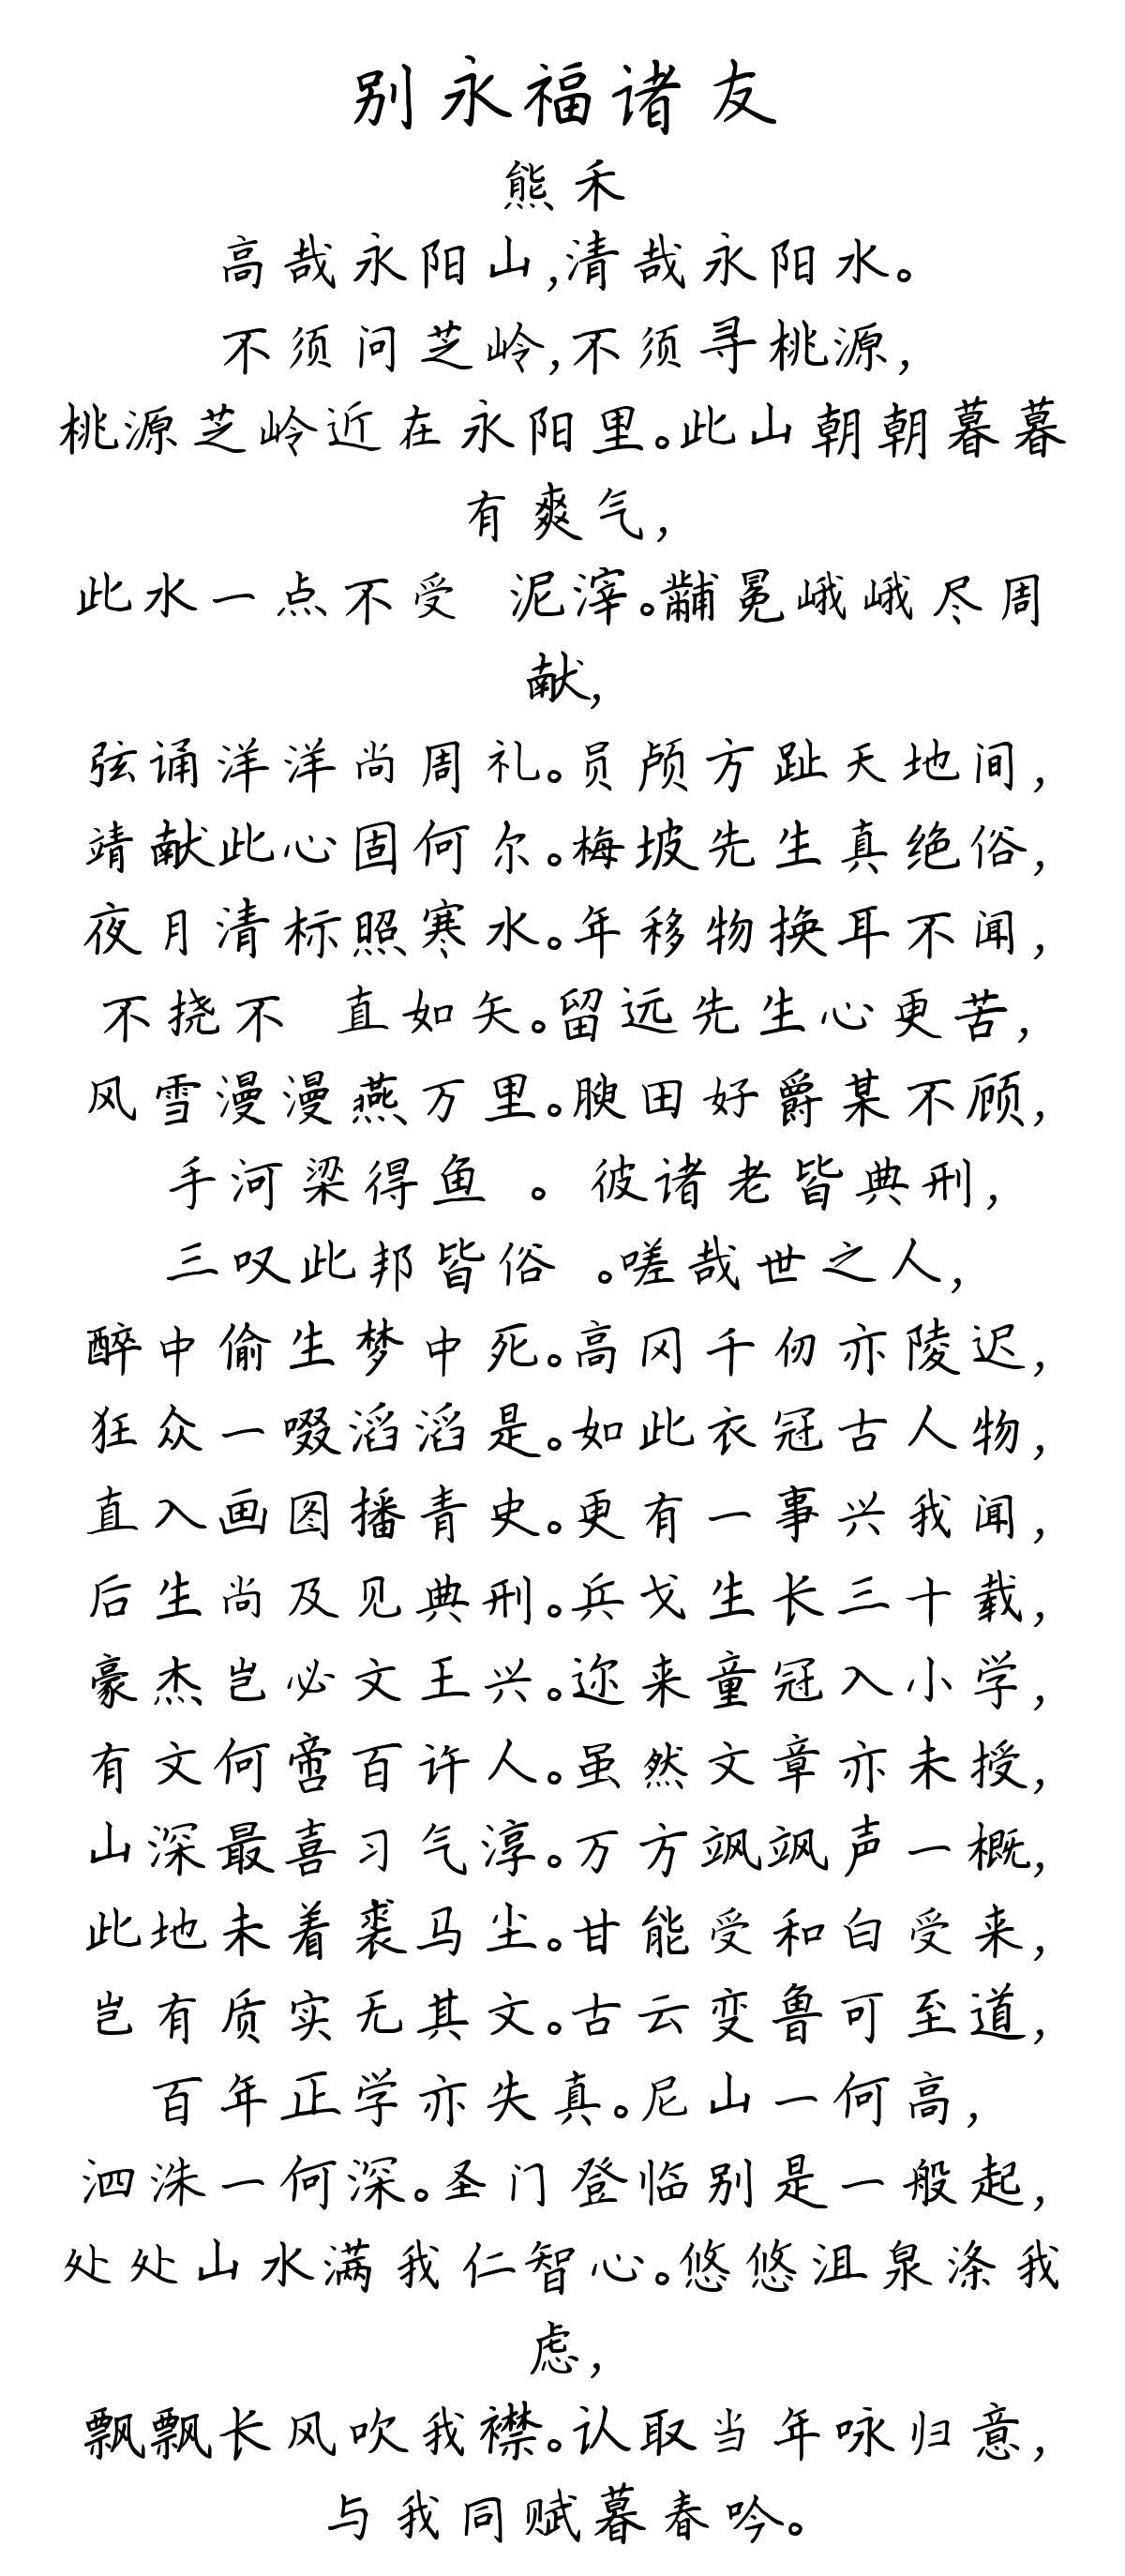 别永福诸友
熊禾
高哉永阳山,清哉永阳水。
不须问芝岭,不须寻桃源,
桃源芝岭近在永阳里。此山朝朝暮暮
有爽气,
此水一点不受 泥滓。黼冕峨峨尽周
献,
弦诵洋洋尚周礼。员颅方趾天地间,
靖献此心固何尔。梅坡先生真绝俗,
夜月清标照寒水。年移物换耳不闻,
不挠不 直如矢。留远先生心更苦,
风雪漫漫燕万里。腴田好爵某不顾,
手河梁得鱼 。 彼诸老皆典刑,
三叹此邦皆俗 。嗟哉世之人,
醉中偷生梦中死。高冈千仞亦陵迟,
狂众一啜滔滔是。如此衣冠古人物,
直入画图播青史。更有一事兴我闻,
后生尚及见典刑。兵戈生长三十载,
豪杰岂必文王兴。迩来童冠入小学,
有文何啻百许人。虽然文章亦未授,
山深最喜习气淳。万方飒飒声一概,
此地未着裘马尘。甘能受和白受来,
岂有质实无其文。古云变鲁可至道,
百年正学亦失真。尼山一何高,
泗洙一何深。圣门登临别是一般起,
处处山水满我仁智心。悠悠沮泉涤我
虑,
飘飘长风吹我襟。认取当年咏归意,
与我同赋暮春吟。